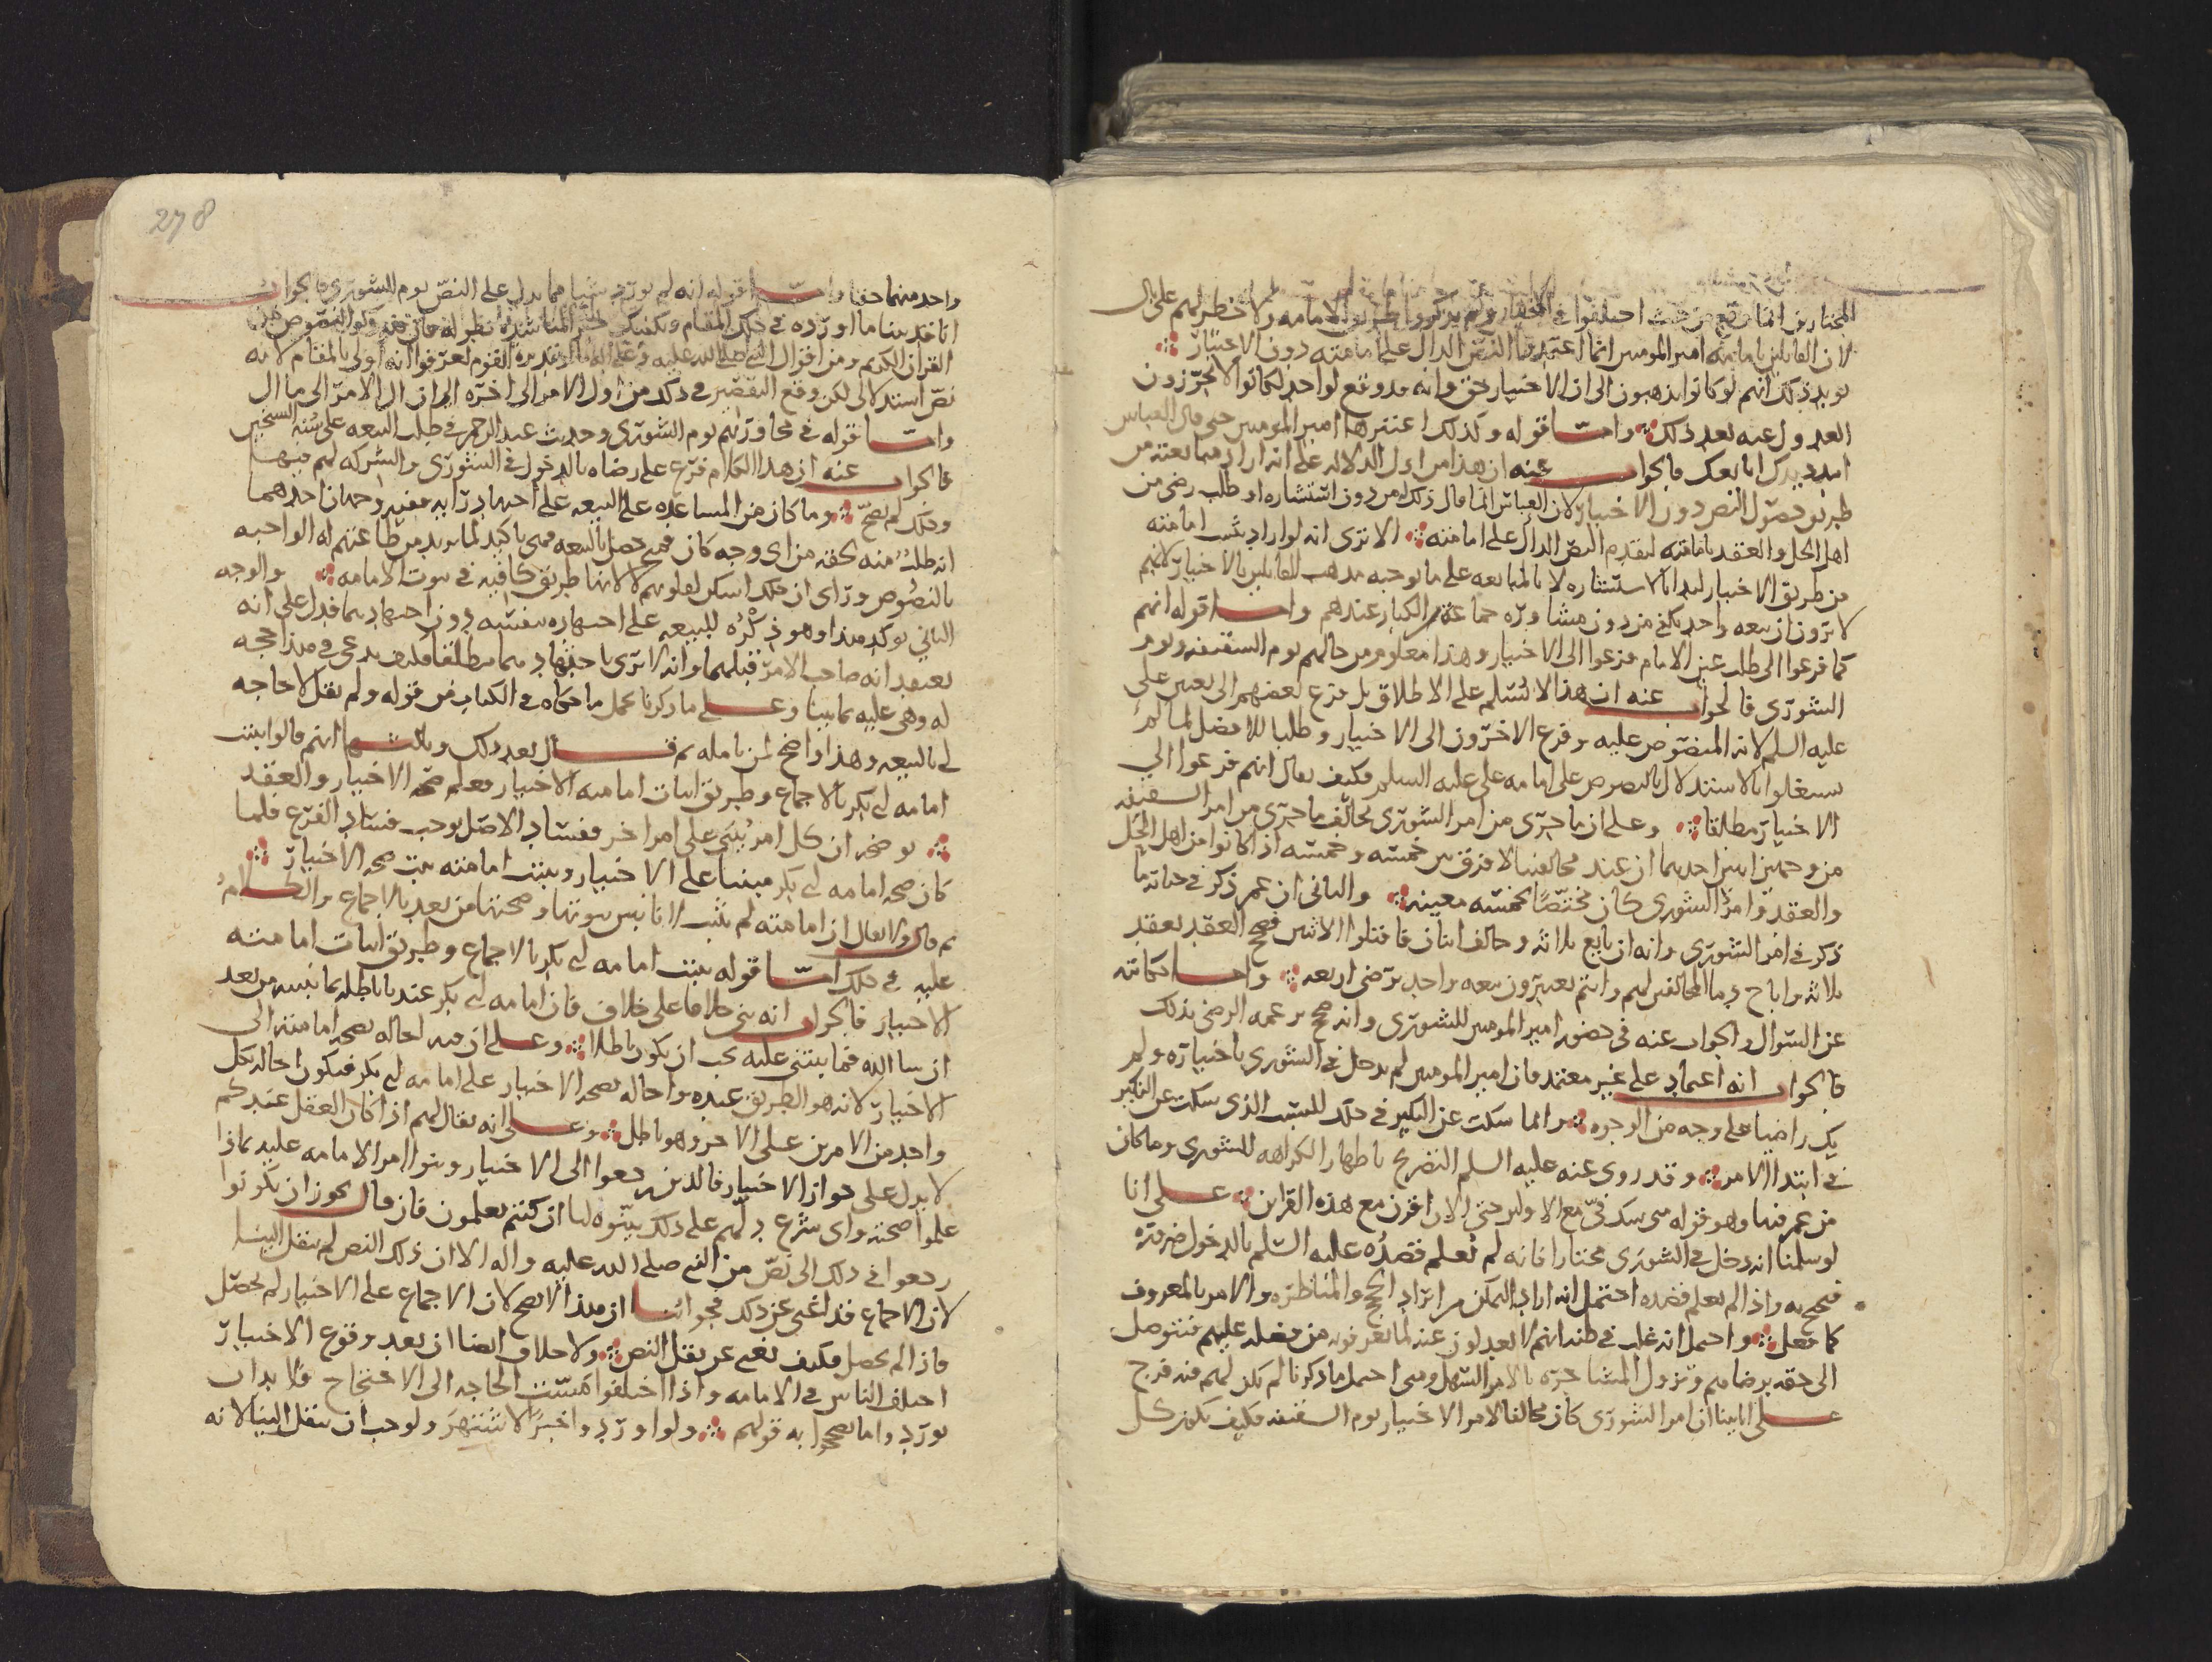 المختارين انما وقع من حيث اختلفوا في المختار ولم يذكروا طريق الامامه ولا خطر لهم على بال
لان القايلين بامامة امير المومنين انما اعتمدوا النص الدال على امامته دون الاختيار
يويد ذلك انهم لو كانوا يذهبون الى ان الاختيار حق وانه قد وقع لواحد لكانوا لا يجوزون
العدول عنه بعد ذلك واما قوله وكذلك اعتبرها امير المومنين حتى قال العباس
امدد يدك ابايعك فالجواب عنه ان هذا من ادل الدلالة على انه اراد مبايعته من
طريق حصول النص دون الاختيار لان العباس انما قال ذلك من دون استشاره او طلب رضى من
اهل الحل والعقد بامامته لتقدم النص الدال على امامته الا ترى انه لو اراد ثبت امامته
من طريق الاختيار لبدا بالاستشاره لا بالمبايعه على ما يوجبه مذهب القايلين بالاختيار لانهم
لا يرون ان بيعه واحد يكفي من دون مشاوره جماعة الكبار عندهم واما قوله انهم
كما فزعوا الى طلب عين الامام فزعوا الى الاختيار وهذا معلوم من حالهم يوم السقيفه ويوم
الشورى فالجواب عنه ان هذا لا نسلم على الاطلاق بل فزع بعضهم الى تعيين علي
عليه السلم لانه المنصوص عليه وفزع الاخرون الى الاختيار وطلبا للافضل لما لم
يشتغلوا بالاستدلال بالنصوص على امامه علي عليه السلم فكيف يقال انهم فزعوا الى
الاختيار مطلقا وعلى ان ما جرى من امر الشورى يخالف ما جرى من امر السقيفه
من وجهين اثنين احدهما ان عند مخالفينا لا فرق بين خمسه وخمسه اذا كانوا من اهل الحل
والعقد وامر الشورى كان مختصا بخمسه معينه والثاني ان عمر ذكر في حياته ما
ذكر في امر الشورى وانه ان بايع ثلاثه وخالف اثنان فاقتلوا الاثنين فصح العقد بعقد
ثلاثه واباح دما المخالفين لهم وانتم تعتبرون بيعه واحد برضى اربعه واما حكايته
عن السوال والجواب عنه في حضور امير المومنين للشورى وانه صحح بزعمه الرضى بذلك
فالجواب انه اعتماد على غير معتمد فان امير المومنين لم يدخل في الشورى باختياره ولم
يك راضيا على وجه من الوجوه وانما سكت عن النكير في ذلك للسبب الذي سكت عن النكير
في ابتدا الامر وقد روي عنه عليه السلم التصريح باظهار الكراهه للشورى وما كان
من عمر فيها وهو قوله متى شك فيّ مع الاول حتى الان اقرن مع هذه القراين على انا
لو سلمنا انه دخل في الشورى مختارا فانه لم نعلم قصده عليه السلم بالدخول ضروره
فيحتج به واذا لم نعلم قصده احتمل انه اراد التمكن من ايراد الحجج والمناظره والامر بالمعروف
كما فعل واحتمل انه غلب في ظنه انهم لا يعدلون عنه لما يعرفونه من فضله عليهم فيتوصل
الى حقه برضاهم وتزول المشاجره بالامر السهل ومتى احتمل ما ذكرنا لم يكن لهم فيه فرج
على انا بينا ان امر الشورى كان مخالفا لامر الاختيار يوم السقيفه فكيف يكون كل
278
واحد منهما حقا واما قوله انه لم يورد شيا مما يدل على النص يوم الشورى فالجواب
انا قد بينا ما اورده في ذلك المقام ويكفيك خبر المناشده
القران الكريم ومن اقوال النبي صلى الله عليه وعلى اله ما لو تدبره القوم لعرفوا انه اولى بالمقام لانه
نص استدلالي لكن وقع التقصير في ذلك من اول الامر الى اخره الى ان ال الامر الى ما ال
واما قوله في محاورتهم يوم الشورى وحديث عبد الرحمن في طلب البيعه على سنه الشيخين
فالجواب عنه ان هذا الكلام فرع على رضاه بالدخول في الشورى والشركه لهم فيها
وذلك لم يصح وما كان من المساعده على البيعه على اجتهاد رايه ففيه وجهان احدهما
انه طلب منه حقه من اي وجه كان فمتى حصل بالبيعه فهي تاكيد لما يريد من طاعتهم له الواجبه
بالنصوص وراى ان ذلك اسكن لقلوبهم لا لانها طريق كافيه في ثبوت الامامه والوجه
الثاني يوكد هذا وهو ذكره للبيعه على اجتهاده بنفسه دون اجتهادهما فدل على انه
يعتقد انه صاحب الامر قبلهما وانه لا يرى باجتهادهما مطلقا فكيف يدعى في هذا حجه
له وهي عليه كما بينا وعلى ما ذكرنا يحمل ما حكاه في الكتاب من قوله ولم يقل لا حاجه
لي بالبيعه وهذا واضح لمن تامله ثم قال بعد ذلك وثالثها انهم قالوا يثبت
امامه ابي بكر بالاجماع وطريق اثبات امامته الاختيار فعلم صحه الاختيار والعقد
يوضحه ان كل امر يبنى على امر اخر ففساد الاصل يوجب فساد الفرع فلما
كان صحه امامه ابي بكر مبنيا على الاختيار وثبت امامته ثبت صحه الاختيار
ثم قال ولا يقال ان امامته لم تثبت لانا نبين ثبوتها وصحتها من بعد بالاجماع والكلام
عليه في ذلك اما قوله يثبت امامه ابي بكر بالاجماع وطريق اثبات امامته
الاختيار فالجواب انه بنى خلافا على خلاف فان امامه ابي بكر عندنا باطله بما نبينه من بعد
ان شا الله فما ينبني عليه يجب ان يكون باطلا وعلى ان فيه احاله بصحه امامته الى
الاختيار لانه هو الطريق عنده واحاله بصحه الاختيار على امامه ابي بكر فيكون احاله كل
واحد من الامرين على الاخر وهو باطل وعلى انه يقال لهم اذا كان العقل عندكم
لا يدل على جواز الاختيار فالذين رجعوا الى الاختيار وبنوا امر الامامه عليه بماذا
علموا صحته واي شرع دلهم على ذلك بينوه لنا ان كنتم تعلمون فان قال يجوز ان يكونوا
رجعوا في ذلك الى نص من النبي صلى الله عليه واله الا ان ذلك النص لم ينقل الينا
لان الاجماع قد اغنى عن ذلك فجوابنا ان هذا لا يصح لان الاجماع على الاختيار لم يحصل
فاذا لم يحصل فكيف يغني عن نقل النص ولا خلاف ايضا ان بعد وقوع الاختيار
اختلف الناس في الامامه واذا اختلفوا مست الحاجه الى الاحتجاج فلا بد ان
يورد واما يصححوا به قولهم ولو اوردوا خبرا لاشتهر ولوجب ان ينقل الينا لانه